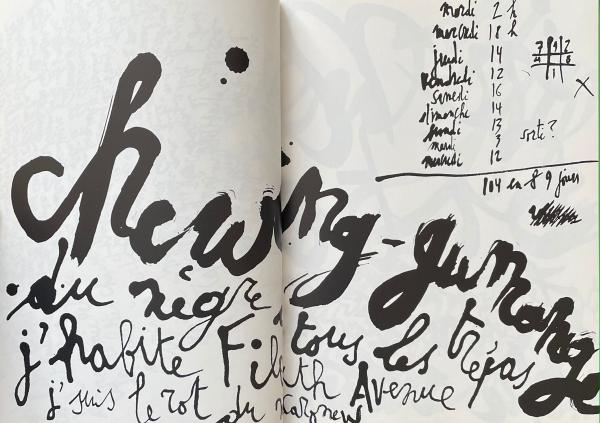 mardi 2 h
mercredi 18 h
jeudi 14
vendredi 12
samedi 16
dimanche 14
lundi 13 sorti?
mardi 3
mercredi 12
104 en 8 9 jours
chewing-gum
du nègre tous les trépas
j'habite Fifth Avenue
j'suis le rot du